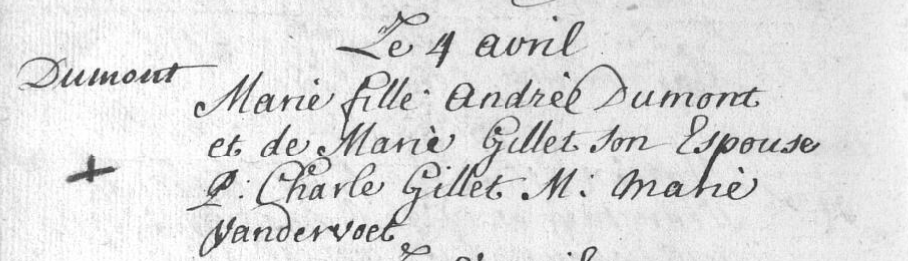 Le 4 avril
Dumont
Marie fille Andrèe Dumont
et de Marie Gillet son Espouse
P: Charle Gillet M: marie
Vandervoet